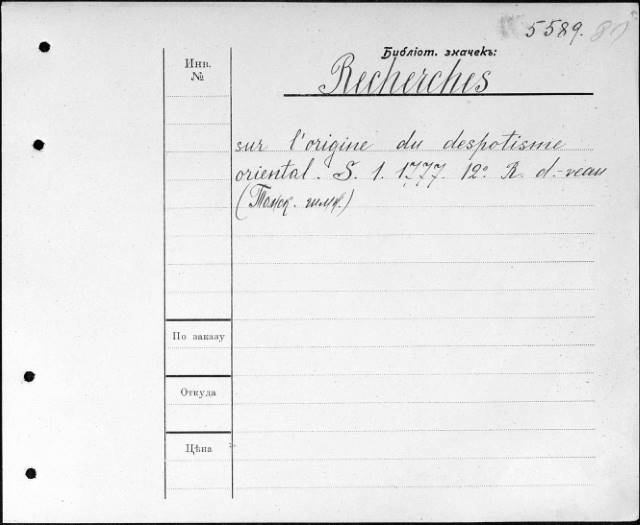 5589.
Инв.
№
Библіот. значекъ:
Recherches
sur l'origine du despotisme
oriental. S. 1. 1777. 12º R. d.-veau
По заказу
Откуда
Цѣна